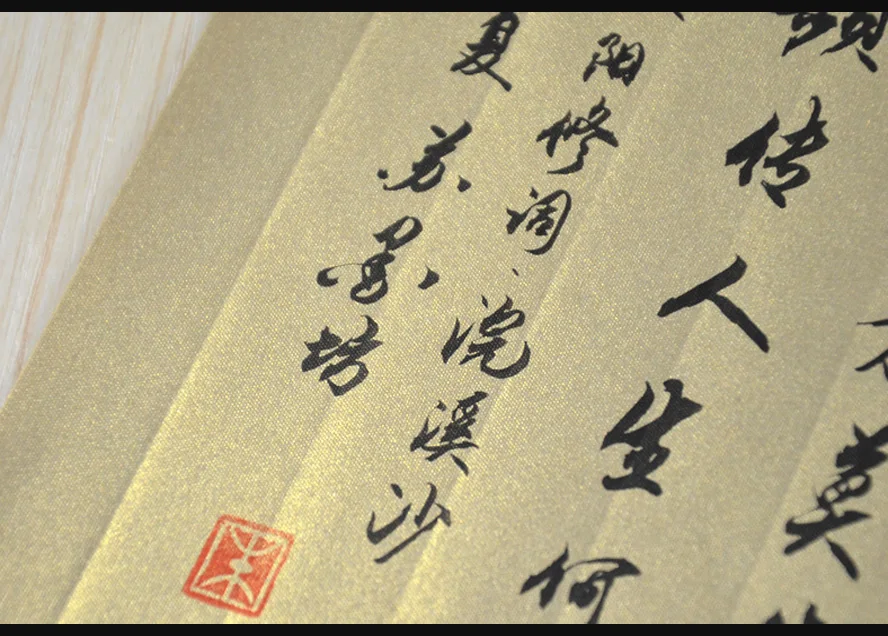 莫
传人生何
阳修词浣溪沙
夏苏墨坊